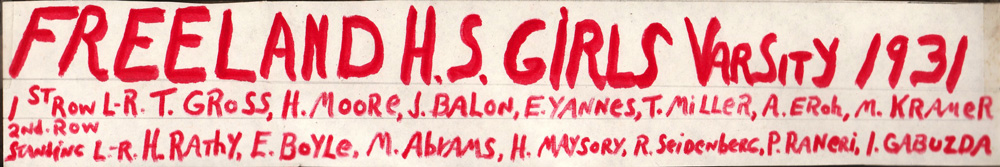 FREELAND H.S. GIRLS VARSITY 1931
1ST ROW L-R. T. GROSS, H. MOORE, J. BALON, E. YANNES, T. MILLER, A. EROH, M. KRAMER
2ND. ROW
STANDING L-R. H. RATHY, E. BOYLE, M. ABRAMS, H. MAYSORY, R. SEIDENBERG, P. RANERI, I. GABUZDA